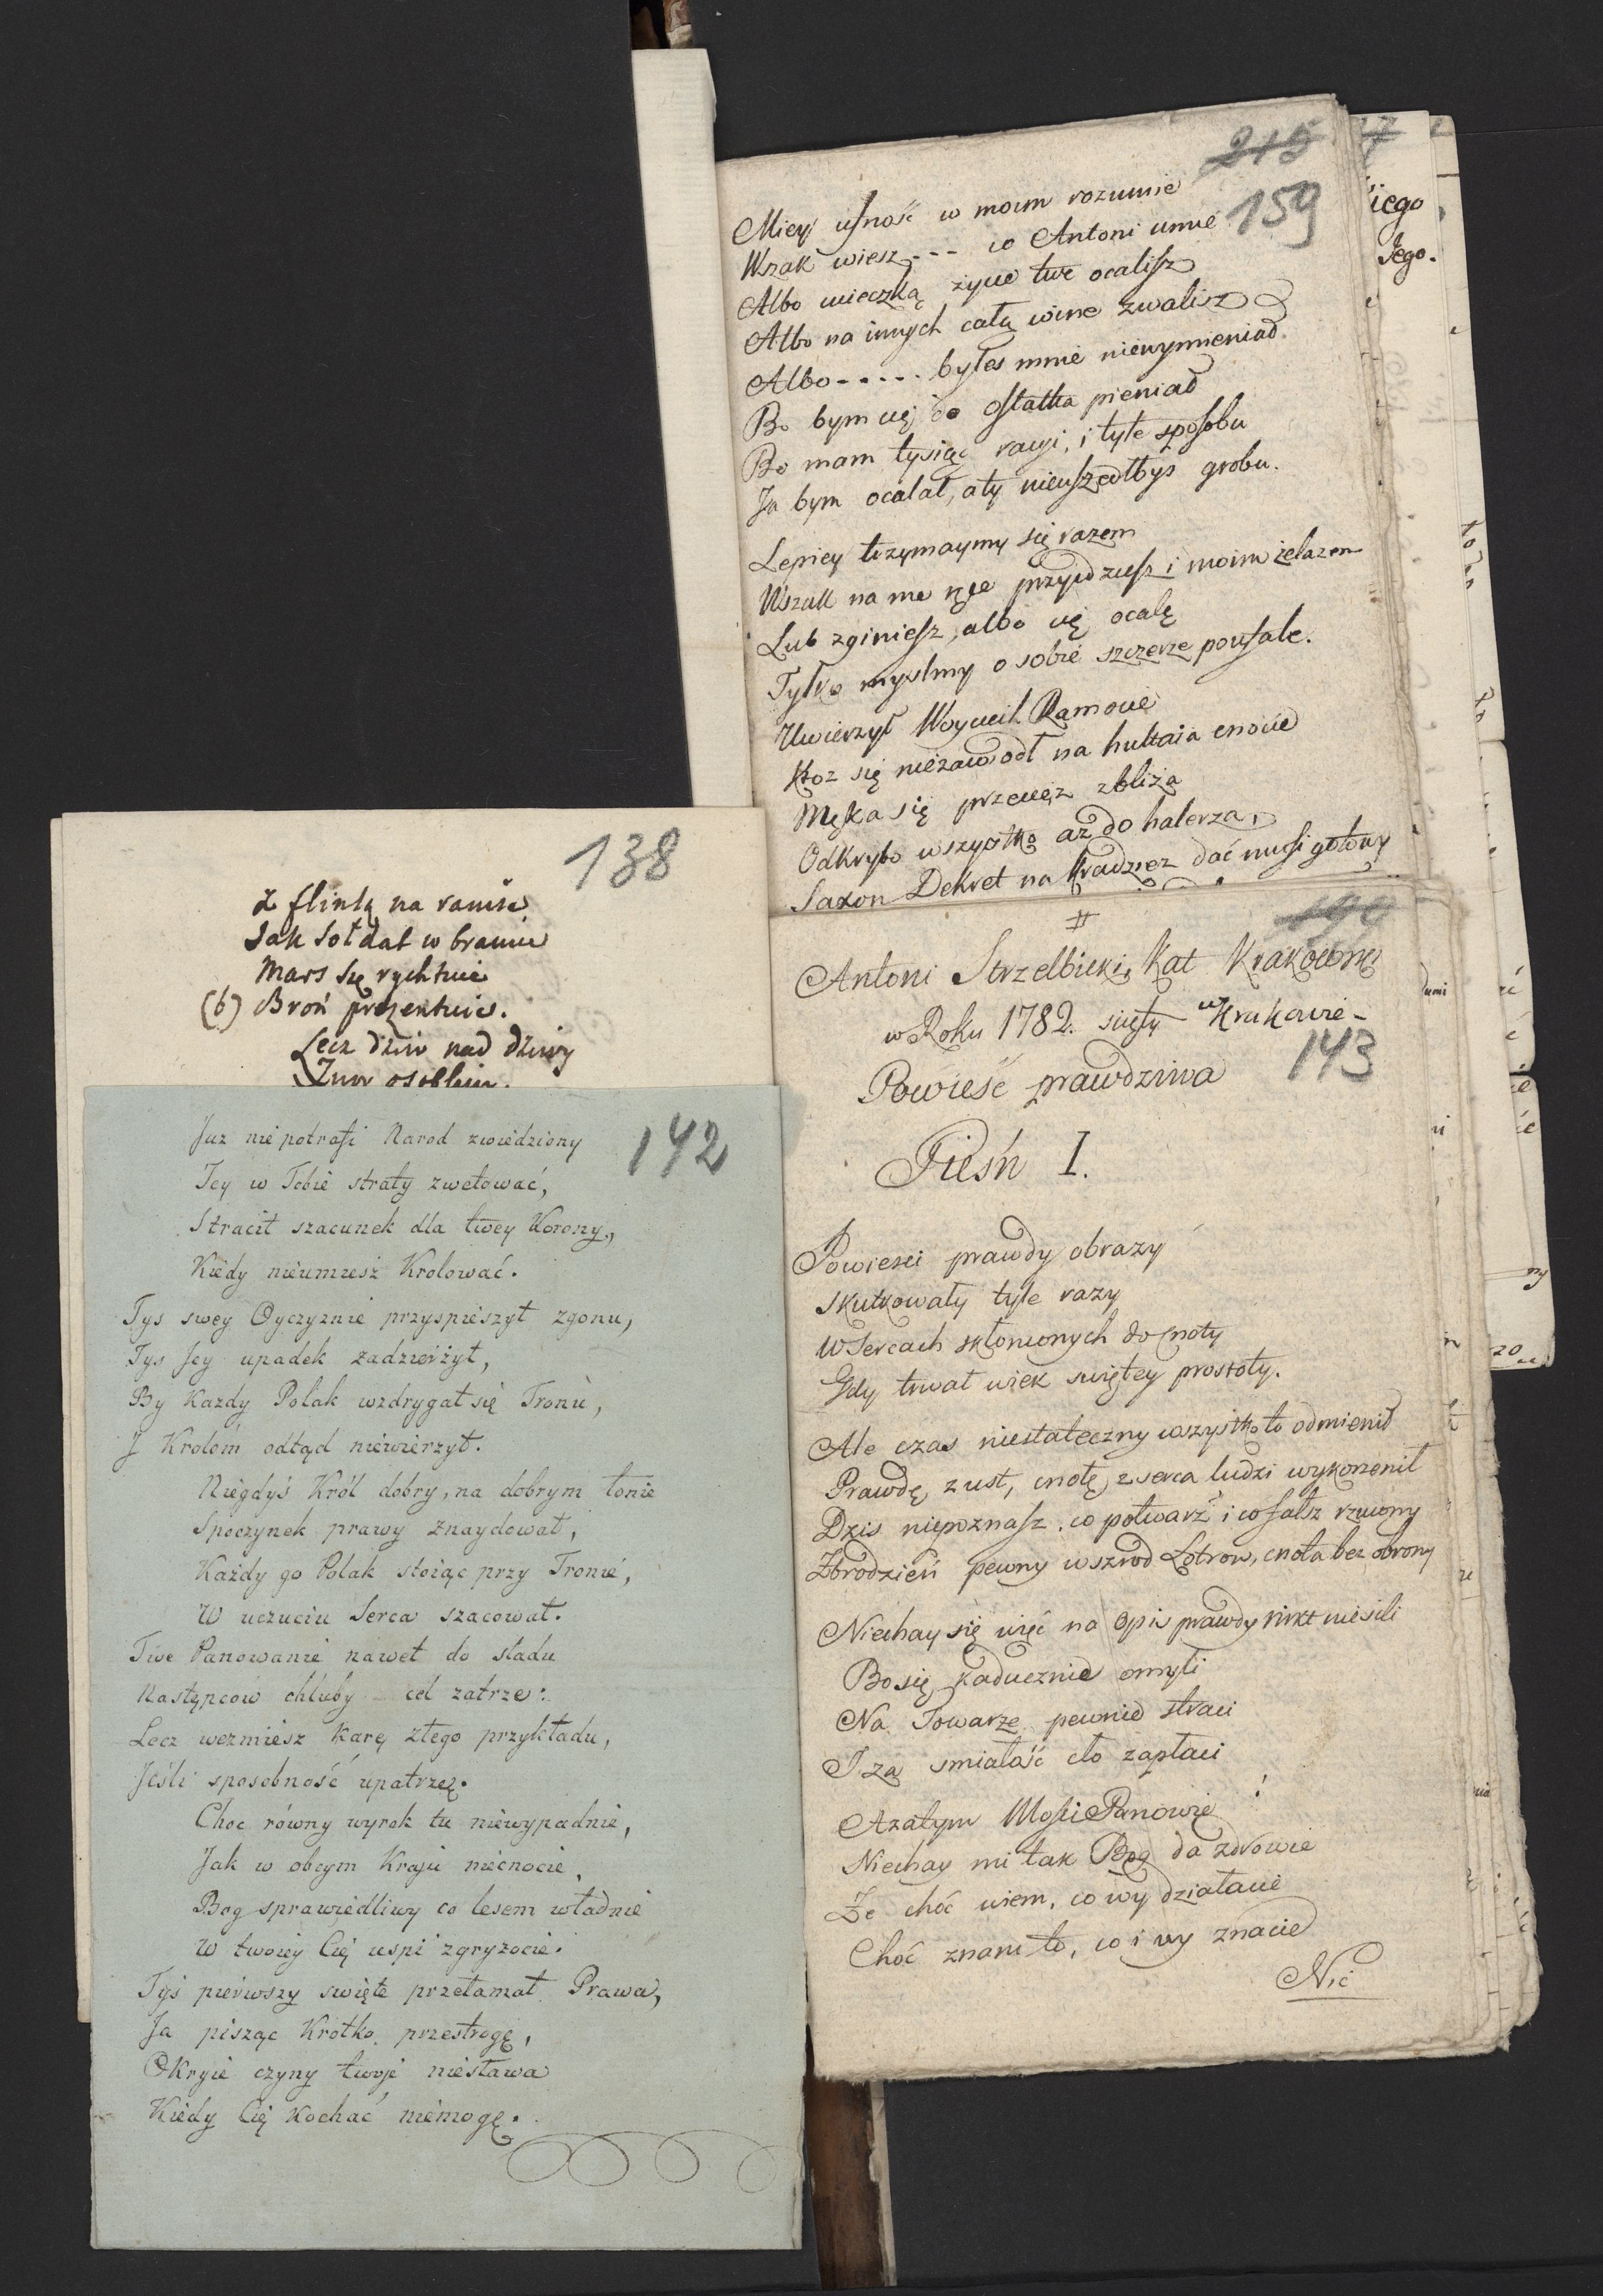 159
Miey ufność w moim rozumie
Wszak wiesz --- co Antoni umie
Albo ucieczką życie twe ocalisz
Albo na innych całą wine zwalisz
Albo ----- byłes mnie niewymieniał
Bo bym cię do ostatka pieniał
Bo mam tysiąc racyi, i tyle sposobu
Ja bym ocalał, a ty nieuszedłbys grobu.
Lepiey trzymaymy się razem
Wszak na me ręce przyidziesz i moim żelazem
Lub zginiesz, albo cię ocalę
Tylko myslmy o sobie szczerze poufale.
Uwierzył Woyciech Ramocie
Ktoz się niezawiodł na hultaia cnocie
Męka się przeciez zbliża
Odkryto wszystko az do halerza,
Saxon Dekret na kradziez dać musi gotowy
138
Z flintą na ramie
Jak Sołdat w bramie
Mars się rychtuie
(b) Broń prezentuie.
Lecz dziw nad dziwy
Zuw osobliw.
#
Antoni Strzelbicki, Kat Krakowski
w Roku 1782. ścięty w Krakowie -
143
Powieść prawdziwa
Pieśń I.
Powiesci prawdy obrazy
Skutkowały tyle razy
W Sercach skłonionych do cnoty
Gdy trwał wiek świętey prostoty.
Ale czas niestateczny wszystko to odmienił
Prawdę z ust, cnotę z serca ludzi wykorzenił
Dzis niepoznasz, co potwarz i co fałsz rzucony
Zbrodzień pewny wszrod Łotrow, cnota bez obrony
Niechay się więc na opis prawdy nikt niesili
Bo się kaducznie omyli
Na Towarze pewnie straci
I za smiałość cło zapłaci
A zatym Mosci Panowie!
Niechay mi tak Bog da zdrowie
Że choć wiem, co wy działacie
Choć znam to, co i wy znacie
Nic
142
Juz nie potrafi Narod zwiedziony
Tey w Tobie straty zwetować,
Stracił szacunek dla twey Korony,
Kiedy nieumiesz Krolować.
Tys swey Oyczyznie przyspieszył zgonu,
Tys Jey upadek zadzierżył,
By Kazdy Polak wzdrygał się Tronu,
J Krolom odtąd niewierzył.
Niegdyś Król dobry, na dobrym łonie
Spoczynek prawy znaydował,
Każdy go Polak stoiąc przy Tronie,
W uczuciu Serca szacował.
Twe Panowanie nawet do sladu
Następcow chluby cel zatrze:
Lecz wezmiesz karę złego przykładu,
Jeśli sposobność upatrzę.
Choc równy wyrok tu niewypadnie,
Jak w obcym Kraju niecnocie,
Bog sprawiedliwy co losem władnie
W twoiey Cię uspi zgryzocie.
Tyś pierwszy swięte przełamał Prawa,
Ja pisząc Krótko przestrogę,
Okryie czyny twoje niesława
Kiedy Cię Kochać niemogę.
iego
Jego.